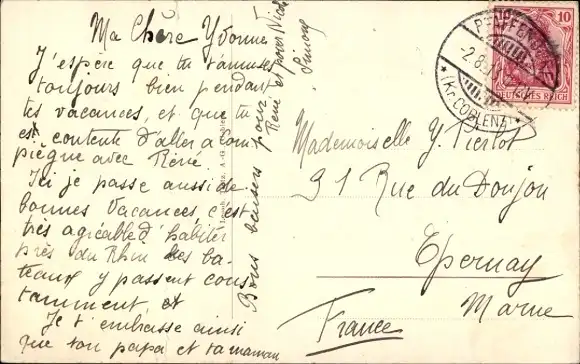 Ma Chère Yvonne
J'espère que tu t'amuses
toujours bien pendant
tes vacances, et que tu
es contente d'aller à Com
piègne avec René
Ici je passe aussi de
bonnes vacances, c'est
très agréable d'habiter
près du Rhin les ba-
teaux y passent cons
tamment, et
Je t'embrasse ainsi
que ton papa et ta maman
Bons baisers pour
René et pour
Simone
Mademoiselle Y. Pierlot
91 Rue du Donjon
Epernay
Marne
France
10
DEUTSCHES REICH
2.8.
* (Kr. COBLENZ) *